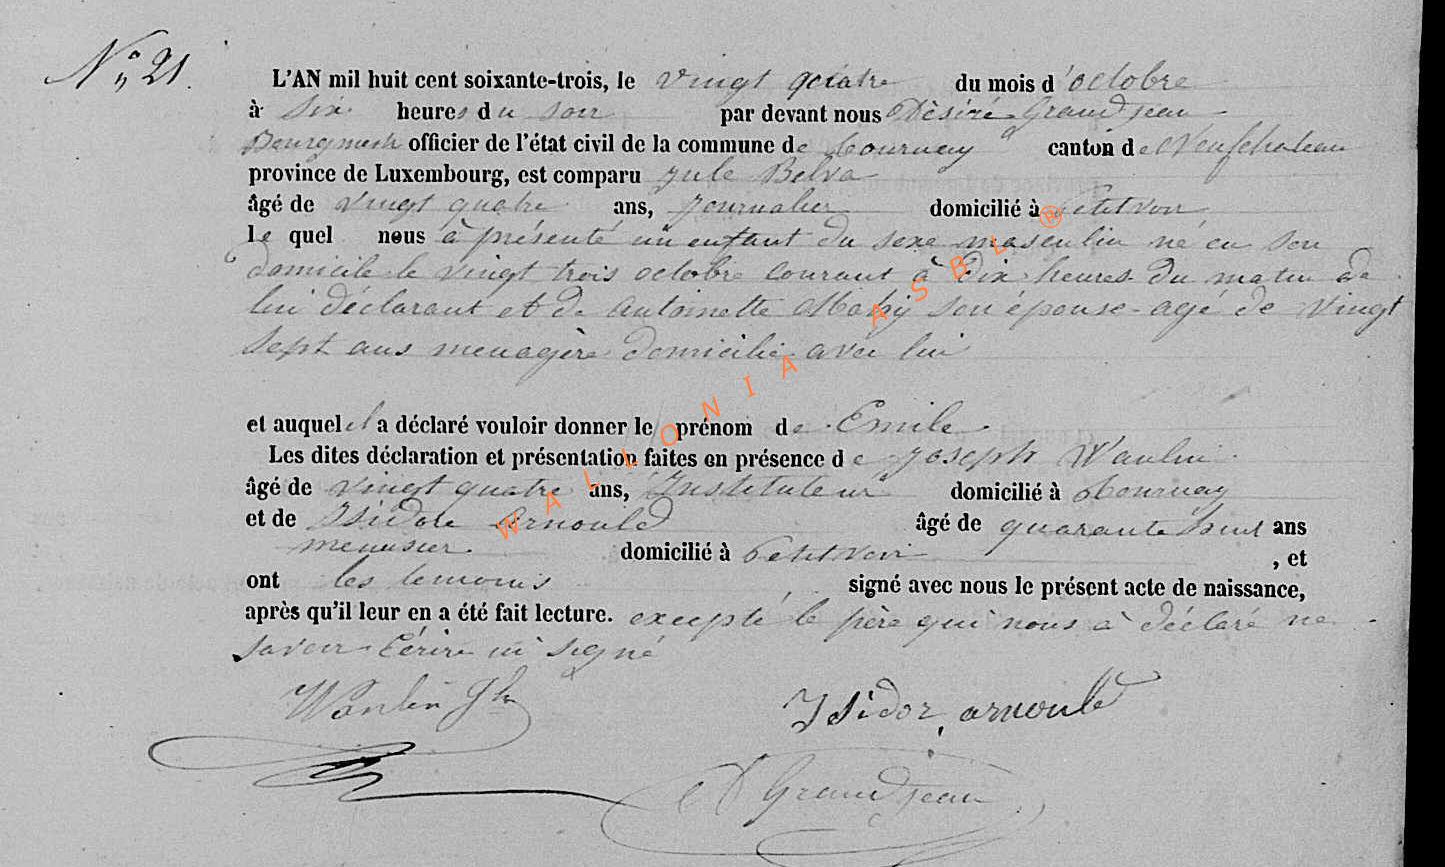 N° 21.
L'AN mil huit cent soixante-trois, le vingt quatre du mois d'octobre
à six heures du soir par devant nous Désiré Grandjean
Bourgmestre officier de l'état civil de la commune de Tournay canton de Neufchateau
province de Luxembourg, est comparu Jule Belva
âgé de vingt quatre ans, journalier domicilié à Petitvoir
le quel nous à présenté un enfant du sexe masculin né en son
domicile le vingt trois octobre courant à dix heures du matin de
lui déclarant et de Antoinette Mahy son épouse agé de vingt
sept ans menagère domicilié avec lui
et auquel il a déclaré vouloir donner le prénom de Emile
Les dites déclaration et présentation faites en présence de Joseph Wanlin
âgé de vingt quatre ans, Instituteur domicilié à Tournay
et de Isidore Arnould âgé de quarante huit ans
menusier domicilié à Petitvoir , et
ont les temoins signé avec nous le présent acte de naissance,
après qu'il leur en a été fait lecture. excepté le père qui nous à déclaré ne
savoir écrire ni signé
Wanlin Jh Isidor arnould
D Grandjean
WALLONIA ASBL ®